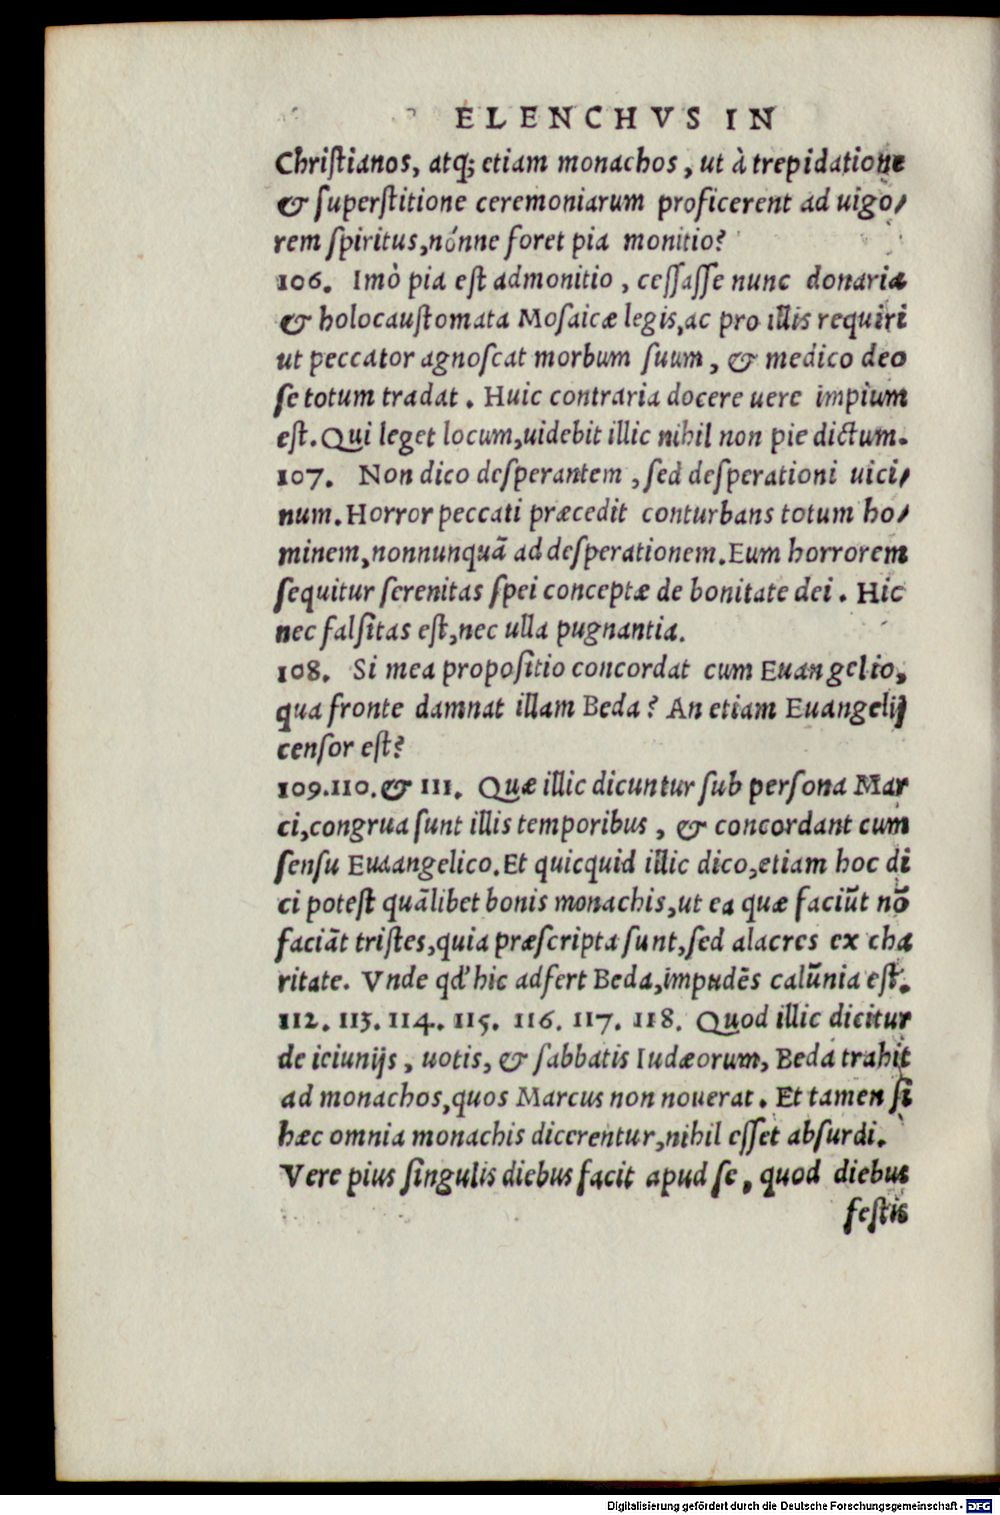 ELENCHVS IN
Chriſtianos, atq; etiam monachos, ut à trepidatione
& ſuperſtitione ceremoniarum proficerent ad uigo/
rem ſpiritus, nónne foret pia monitio?
106. Imò pia eſt admonitio, ceſſaſſe nunc donaria
& holocauſtomata Moſaicæ legis, ac pro illis requiri
ut peccator agnoſcat morbum ſuum, & medico deo
ſe totum tradat. Huic contraria docere uere impium
eſt. Qui leget locum, uidebit illic nihil non pie dictum.
107. Non dico deſperantem, ſed deſperationi uici/
num. Horror peccati præcedit conturbans totum ho/
minem, nonnunquã ad deſperationem. Eum horrorem
ſequitur ſerenitas ſpei conceptæ de bonitate dei. Hic
nec falſitas eſt, nec ulla pugnantia.
108. Si mea propoſitio concordat cum Euangelio,
qua fronte damnat illam Beda? An etiam Euangelij
cenſor eſt?
109.110.& 111. Quæ illic dicuntur ſub perſona Mar
ci, congrua ſunt illis temporibus, & concordant cum
ſenſu Euaangelico. Et quicquid illic dico, etiam hoc di
ci poteſt quãlibet bonis monachis, ut ea quæ faciũt nõ
faciãt triſtes, quia præſcripta ſunt, ſed alacres ex cha
ritate. Vnde qd' hic adfert Beda, impudẽs calũnia eſt.
112. 113. 114. 115. 116. 117. 118. Quod illic dicitur
de ieiunijs, uotis, & ſabbatis Iudæorum, Beda trahit
ad monachos, quos Marcus non nouerat. Et tamen ſi
hæc omnia monachis dicerentur, nihil eſſet abſurdi.
Vere pius ſingulis diebus facit apud ſe, quod diebus
feſtis
Digitalisierung gefördert durch die Deutsche Forschungsgemeinschaft - DFG